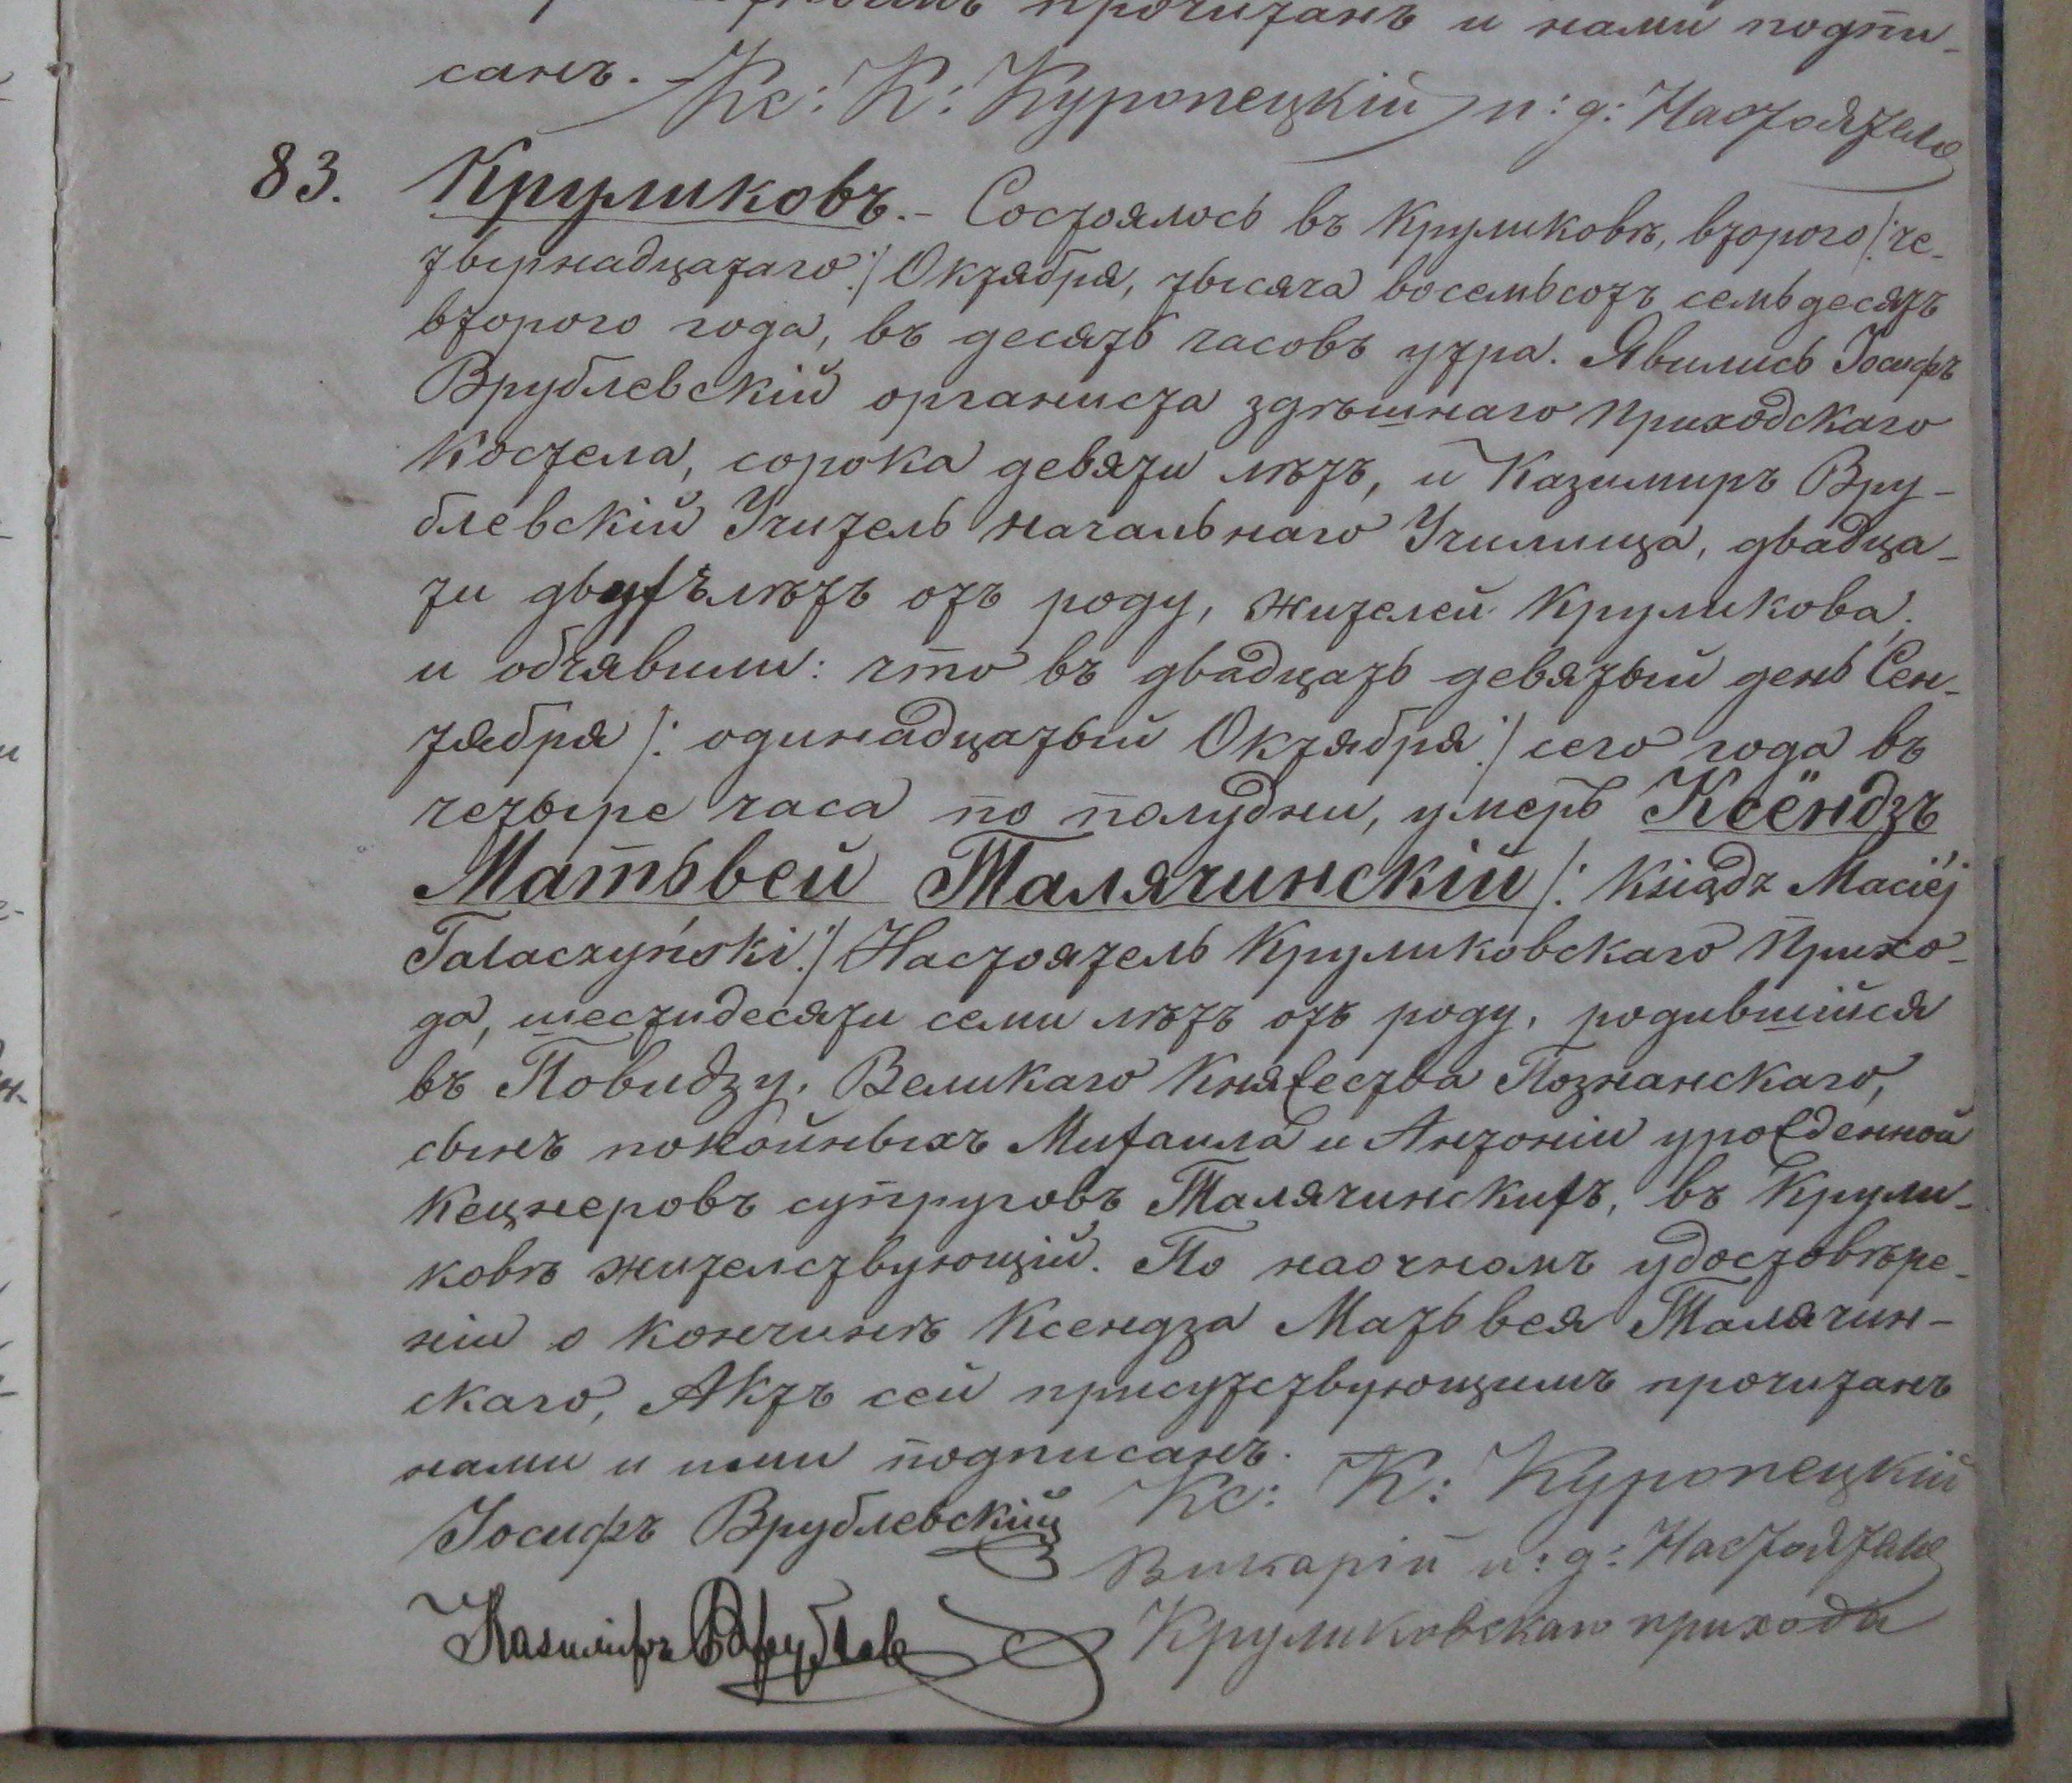 прочитанъ и нами подпи-
санъ. Кс: К: Куропецкій и: д: Настоятеля
83. Круликовъ. – Состоялось въ Круликовѣ, втораго /: че-
тырнадцатаго :/ Октября, тысяча восемьсотъ семьдесятъ
втораго года, въ десять часовъ утра. Явились Іосифъ
Врублевскій органиста здѣшнаго приходскаго
костела, сорока девяти лѣтъ, и Казимиръ Вру-
блевскій Учитель начальнаго Училища, двадца-
ти двухъ лѣтъ отъ роду, жителей Круликова,
и объявили: что въ двадцать девятый день Сен-
тября /: одинадцатый Октября :/ сего года въ
четыре часа по полудни, умеръ Ксёндзъ
Матьвей Талячинскій /: Ksiądz Maciéj
Talaczyński :/ Настоятель Круликовскаго Прихо-
да, шестидесяти семи лѣтъ отъ роду, родившійся
въ Повидзу, Великаго Княжества Познанскаго,
сынъ покойныхъ Михаила и Антоніи урожденной
Кецнеровъ супруговъ Талячинскихъ, въ Крули-
ковѣ жителствующій. По наочномъ удостовѣре-
ніи о кончинѣ Ксендза Матьвея Талячин-
скаго, Актъ сей присутствующимъ прочитанъ
нами и ими подписанъ.
Кс: К: Куропецкій
Іосифъ Врублевскій
Викарій и: д: Настоятеля
Казимиръ Врублев
Круликовскаго прихода